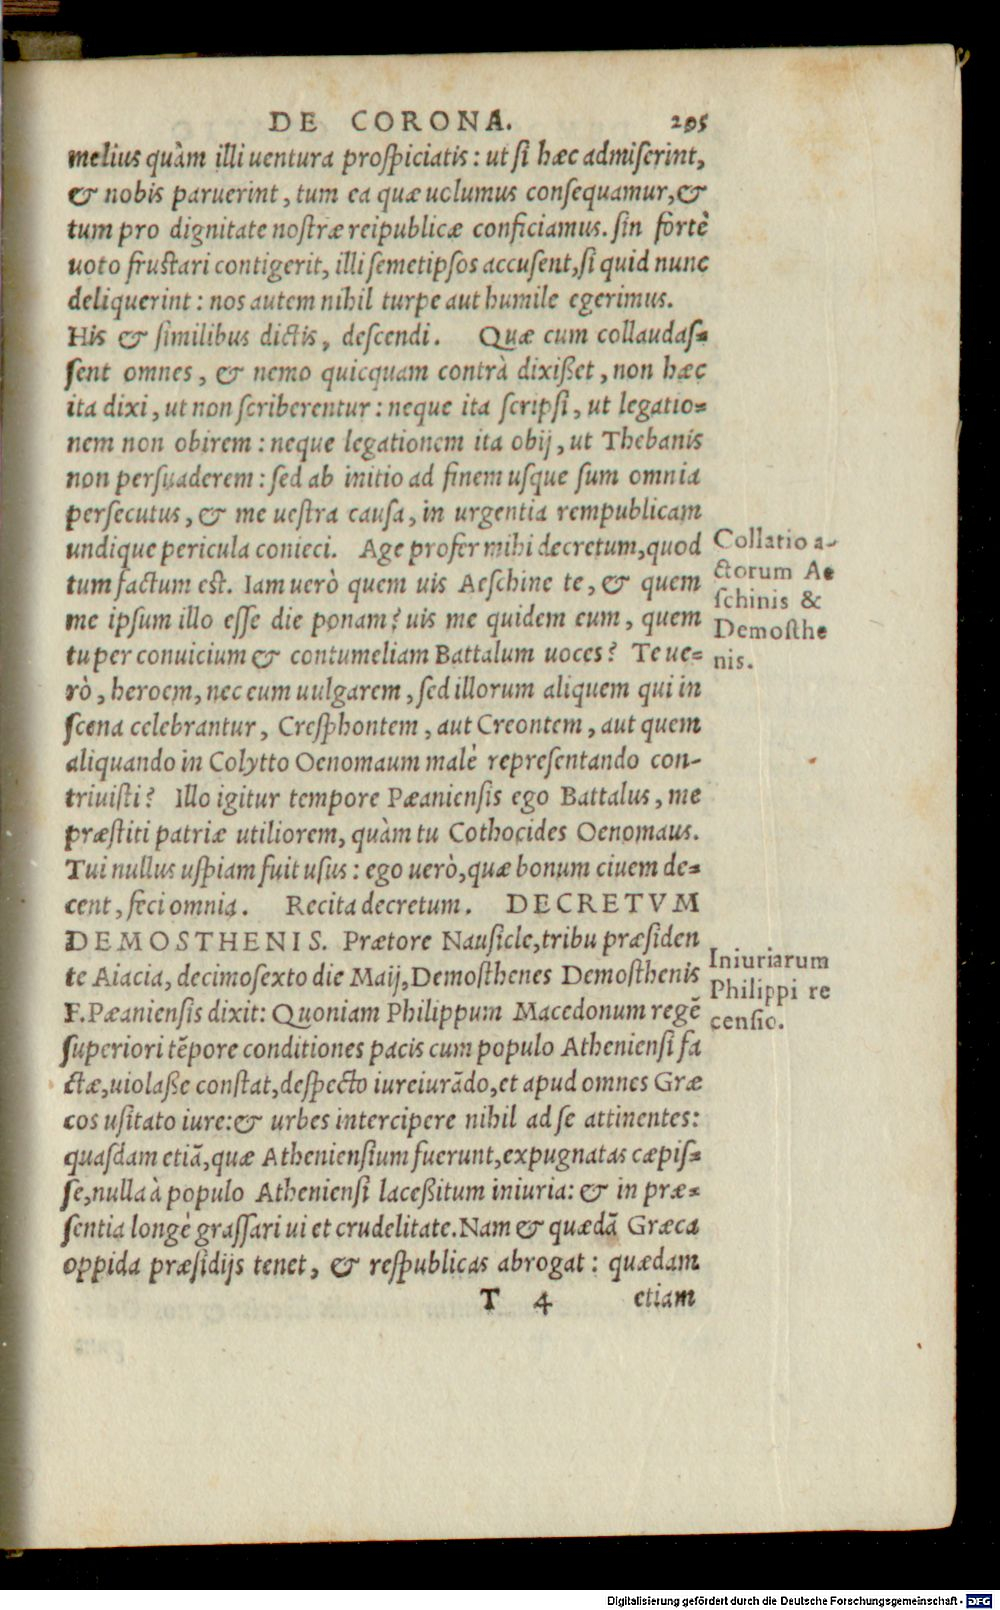 DE CORONA. 295
melius quàm illi uentura prospiciatis: ut si hæc admiserint,
& nobis paruerint, tum ea quæ uolumus consequamur, &
tum pro dignitate nostræ reipublicæ conficiamus. sin fortè
uoto frustari contigerit, illi semetipsos accusent, si quid nunc
deliquerint: nos autem nihil turpe aut humile egerimus.
His & similibus dictis, descendi. Quæ cum collaudas=
sent omnes, & nemo quicquam contrà dixißet, non hæc
ita dixi, ut non scriberentur: neque ita scripsi, ut legatio=
nem non obirem: neque legationem ita obij, ut Thebanis
non persuaderem: sed ab initio ad finem usque sum omnia
persecutus, & me uestra causa, in urgentia rempublicam
undique pericula conieci. Age profer mihi decretum, quod
tum factum est. Iam uerò quem uis Aeschine te, & quem
me ipsum illo esse die ponam? uis me quidem eum, quem
tu per conuicium & contumeliam Battalum uoces? Te ue=
rò, heroem, nec eum uulgarem, sed illorum aliquem qui in
scena celebrantur, Cresphontem, aut Creontem, aut quem
aliquando in Colytto Oenomaum malè representando con-
triuisti? Illo igitur tempore Pæaniensis ego Battalus, me
præstiti patriæ utiliorem, quàm tu Cothocides Oenomaus.
Tui nullus uspiam fuit usus: ego uerò, quæ bonum ciuem de=
cent, feci omnia. Recita decretum. DECRETVM
DEMOSTHENIS. Prætore Nausicle, tribu præsiden
te Aiacia, decimosexto die Maij, Demosthenes Demosthenis
F. Pæaniensis dixit: Quoniam Philippum Macedonum regē
superiori tēpore conditiones pacis cum populo Atheniensi fa
ctæ, uiolaße constat, despecto iureiurādo, et apud omnes Græ
cos usitato iure: & urbes intercipere nihil ad se attinentes:
quasdam etiā, quæ Atheniensium fuerunt, expugnatas cæpis=
se, nulla à populo Atheniensi laceßitum iniuria: & in præ=
sentia longè grassari ui et crudelitate. Nam & quædā Græca
oppida præsidijs tenet, & respublicas abrogat: quædam
T 4 etiam
Collatio a-
ctorum Ae
schinis &
Demosthe
nis.
Iniuriarum
Philippi re
censio.
Digitalisierung gefördert durch die Deutsche Forschungsgemeinschaft - DFG